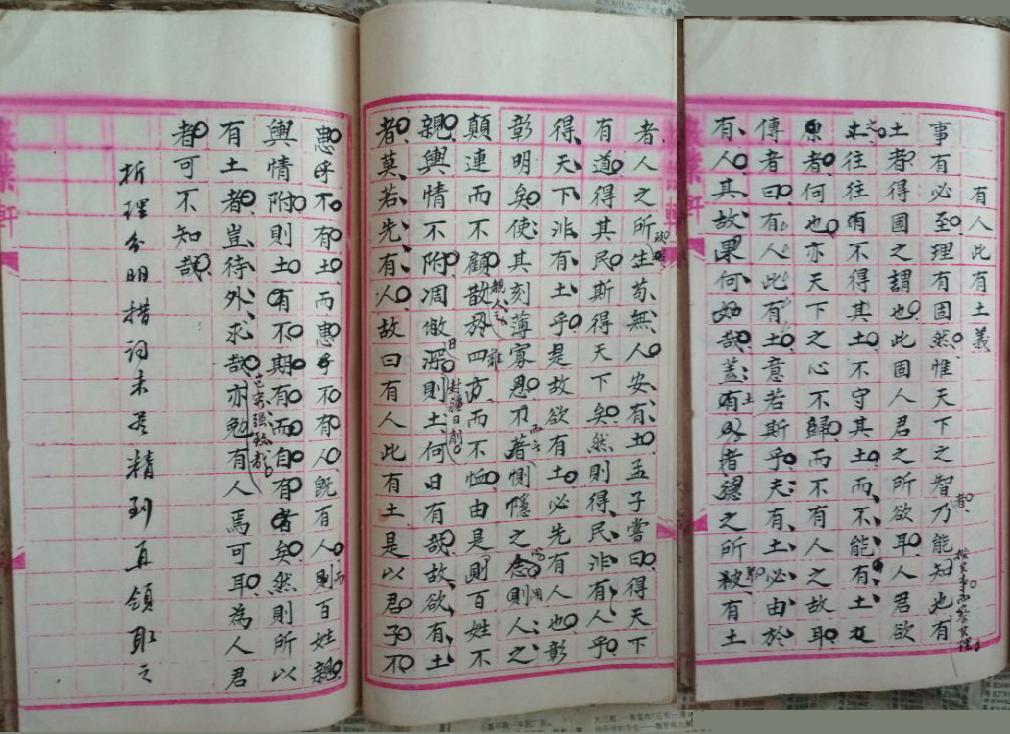 有人此有土義
事有必至理有固然惟天下之智者乃能知也有
土者得國之謂也此固人君之所欲耳人君欲
土往往有不得其土不守其土而不能有土
者何也亦天下之心不歸而不有人之故耳
傳者曰有人此有土意若斯乎夫有土必由於
有人其故果何如哉蓋有土者德之所被有土
者人之所生苟無人安有土孟子嘗曰得天下
有道得其民斯得天下矣然則得民非有人乎
得天下非有土乎是故欲有土必先有人也彰
彰明矣使其刻薄寡恩不著惻隱之念則人之
顛連而不顧散於四方而不恤由是則百姓不
親輿情不附凋傲深則土何日有哉故欲有土
者莫若先有人故曰有人此有土是以君子不
患乎不有土而患乎不有人既百人則百姓親
輿情附則土有不期有而自有者矣然則所以
有土者豈待外求哉亦勉有人焉可耳為人君
者可不知哉
析理分明措詞未若精到再領取之